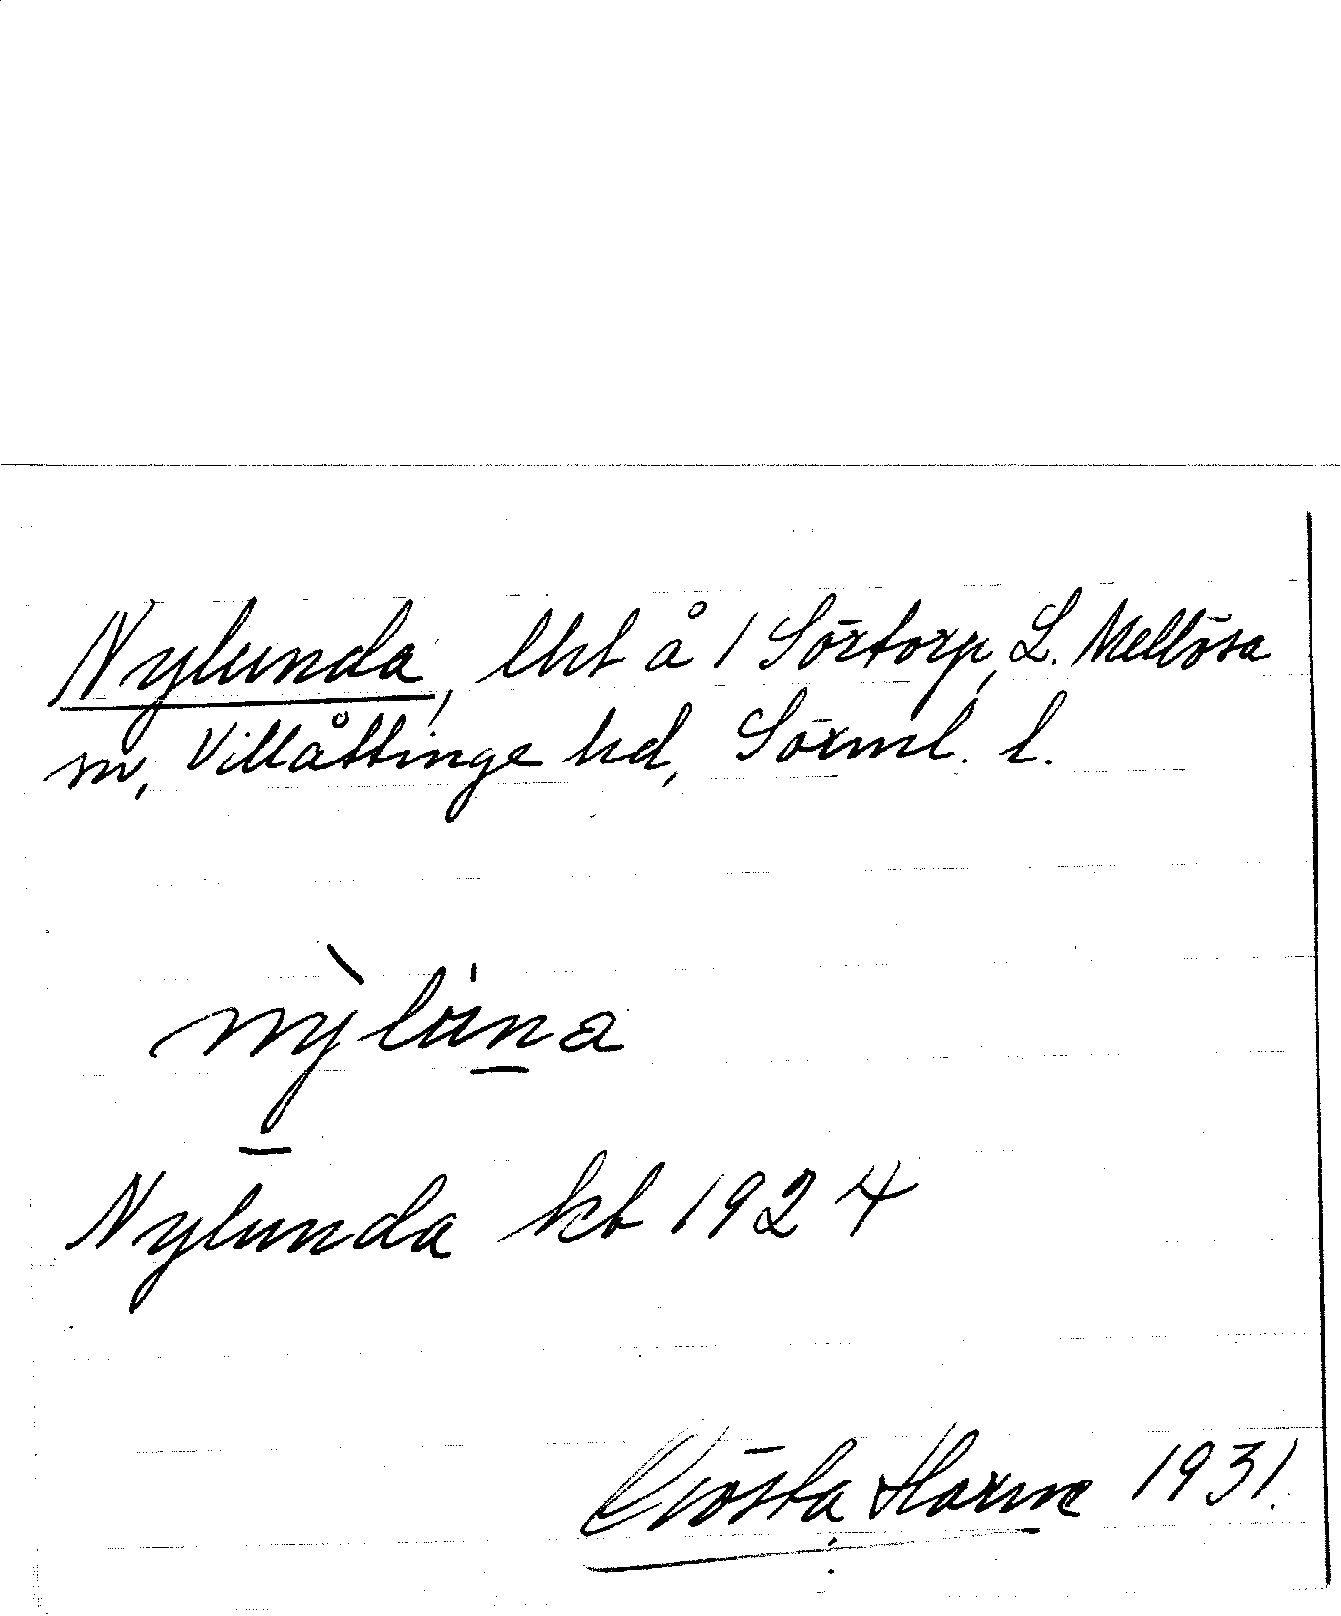 Nylunda, lht å 1 Sörtorp, L. Mellösa
sn, Villåttinge hd, Sörml. l.
nỳlùna
Nylunda kb 1924
Gösta Horne 1931.